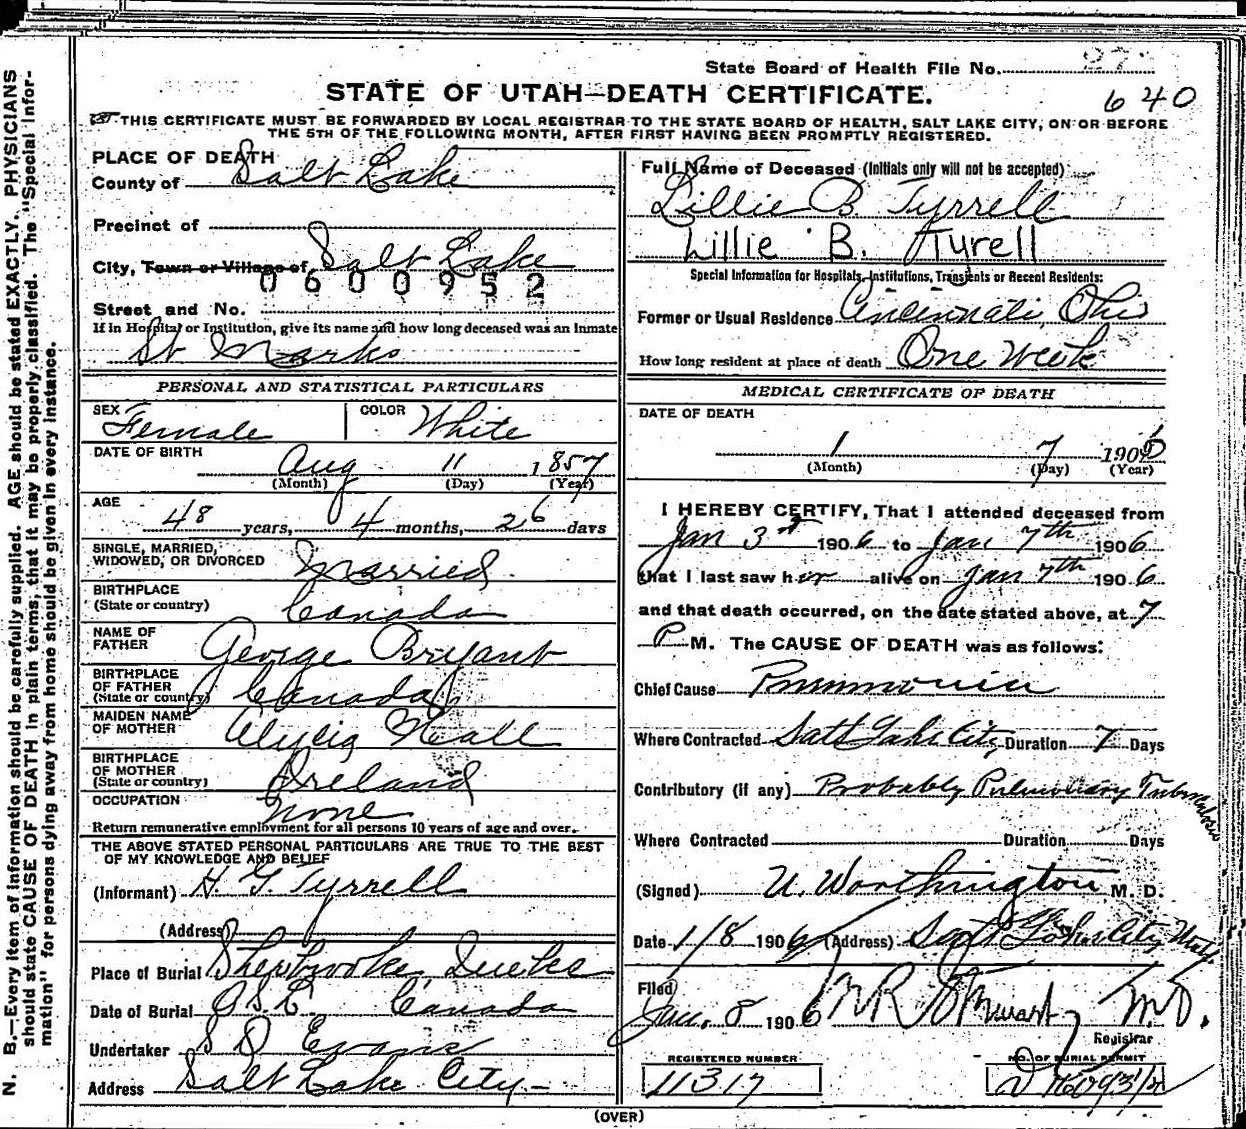 State Board of Health File No.
STATE OF UTAH—DEATH CERTIFICATE.
640
THIS CERTIFICATE MUST BE FORWARDED BY LOCAL REGISTRAR TO THE STATE BOARD OF HEALTH, SALT LAKE CITY, ON OR BEFORE
THE 5TH OF THE FOLLOWING MONTH, AFTER FIRST HAVING BEEN PROMPTLY REGISTERED.
PLACE OF DEATH
County of Salt Lake
Precinct of
City, Town or Village of Salt Lake
0600952
Street and No.
If in Hospital or Institution, give its name and how long deceased was an Inmate
St Marks
PERSONAL AND STATISTICAL PARTICULARS
SEX Female COLOR White
DATE OF BIRTH Aug 11 1857
(Month) (Day) (Year)
AGE 48 years, 4 months, 26 days
SINGLE, MARRIED,
WIDOWED, OR DIVORCED Married
BIRTHPLACE
(State or country) Canada
NAME OF
FATHER George Bryant
BIRTHPLACE
OF FATHER
(State or country) Canada
MAIDEN NAME
OF MOTHER Alycia Hall
BIRTHPLACE
OF MOTHER
(State or country) Ireland
OCCUPATION None
Return remunerative employment for all persons 10 years of age and over.
THE ABOVE STATED PERSONAL PARTICULARS ARE TRUE TO THE BEST
OF MY KNOWLEDGE AND BELIEF
(Informant) H. G. Tyrrell
(Address)
Place of Burial Sherbrooke
Date of Burial Canada
Undertaker S D Evans
Address Salt Lake City
Full Name of Deceased (Initials only will not be accepted)
Lillie B. Tyrrell
Lillie B. Tyrell
Special Information for Hospitals, Institutions, Transients or Recent Residents:
Former or Usual Residence Cincinnati, Ohio
How long resident at place of death One Week
MEDICAL CERTIFICATE OF DEATH
DATE OF DEATH
1 7 1906
(Month) (Day) (Year)
I HEREBY CERTIFY, That I attended deceased from
Jan 3d 1906 to Jan 7th 1906
that I last saw her alive on Jan 7th 1906
and that death occurred, on the date stated above, at 7
P M. The CAUSE OF DEATH was as follows:
Chief Cause Pneumonia
Where Contracted Salt Lake City Duration 7 Days
Contributory (if any) Probably Pulmonary Tuberculosis
Where Contracted Duration Days
(Signed) U. Worthington M. D.
Date 1/8 1906 (Address) Salt Lake City Utah
Filed
Jan. 8 1906 Stewart M.D.
Registrar
REGISTERED NUMBER
11317
NO. OF BURIAL PERMIT
(OVER)
N. B.—Every item of information should be carefully supplied. AGE should be stated EXACTLY. PHYSICIANS
should state CAUSE OF DEATH in plain terms, that it may be properly classified. The "Special Infor-
mation" for persons dying away from home should be given in every instance.